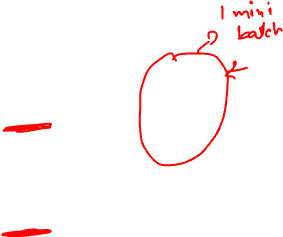 1 mini
batch